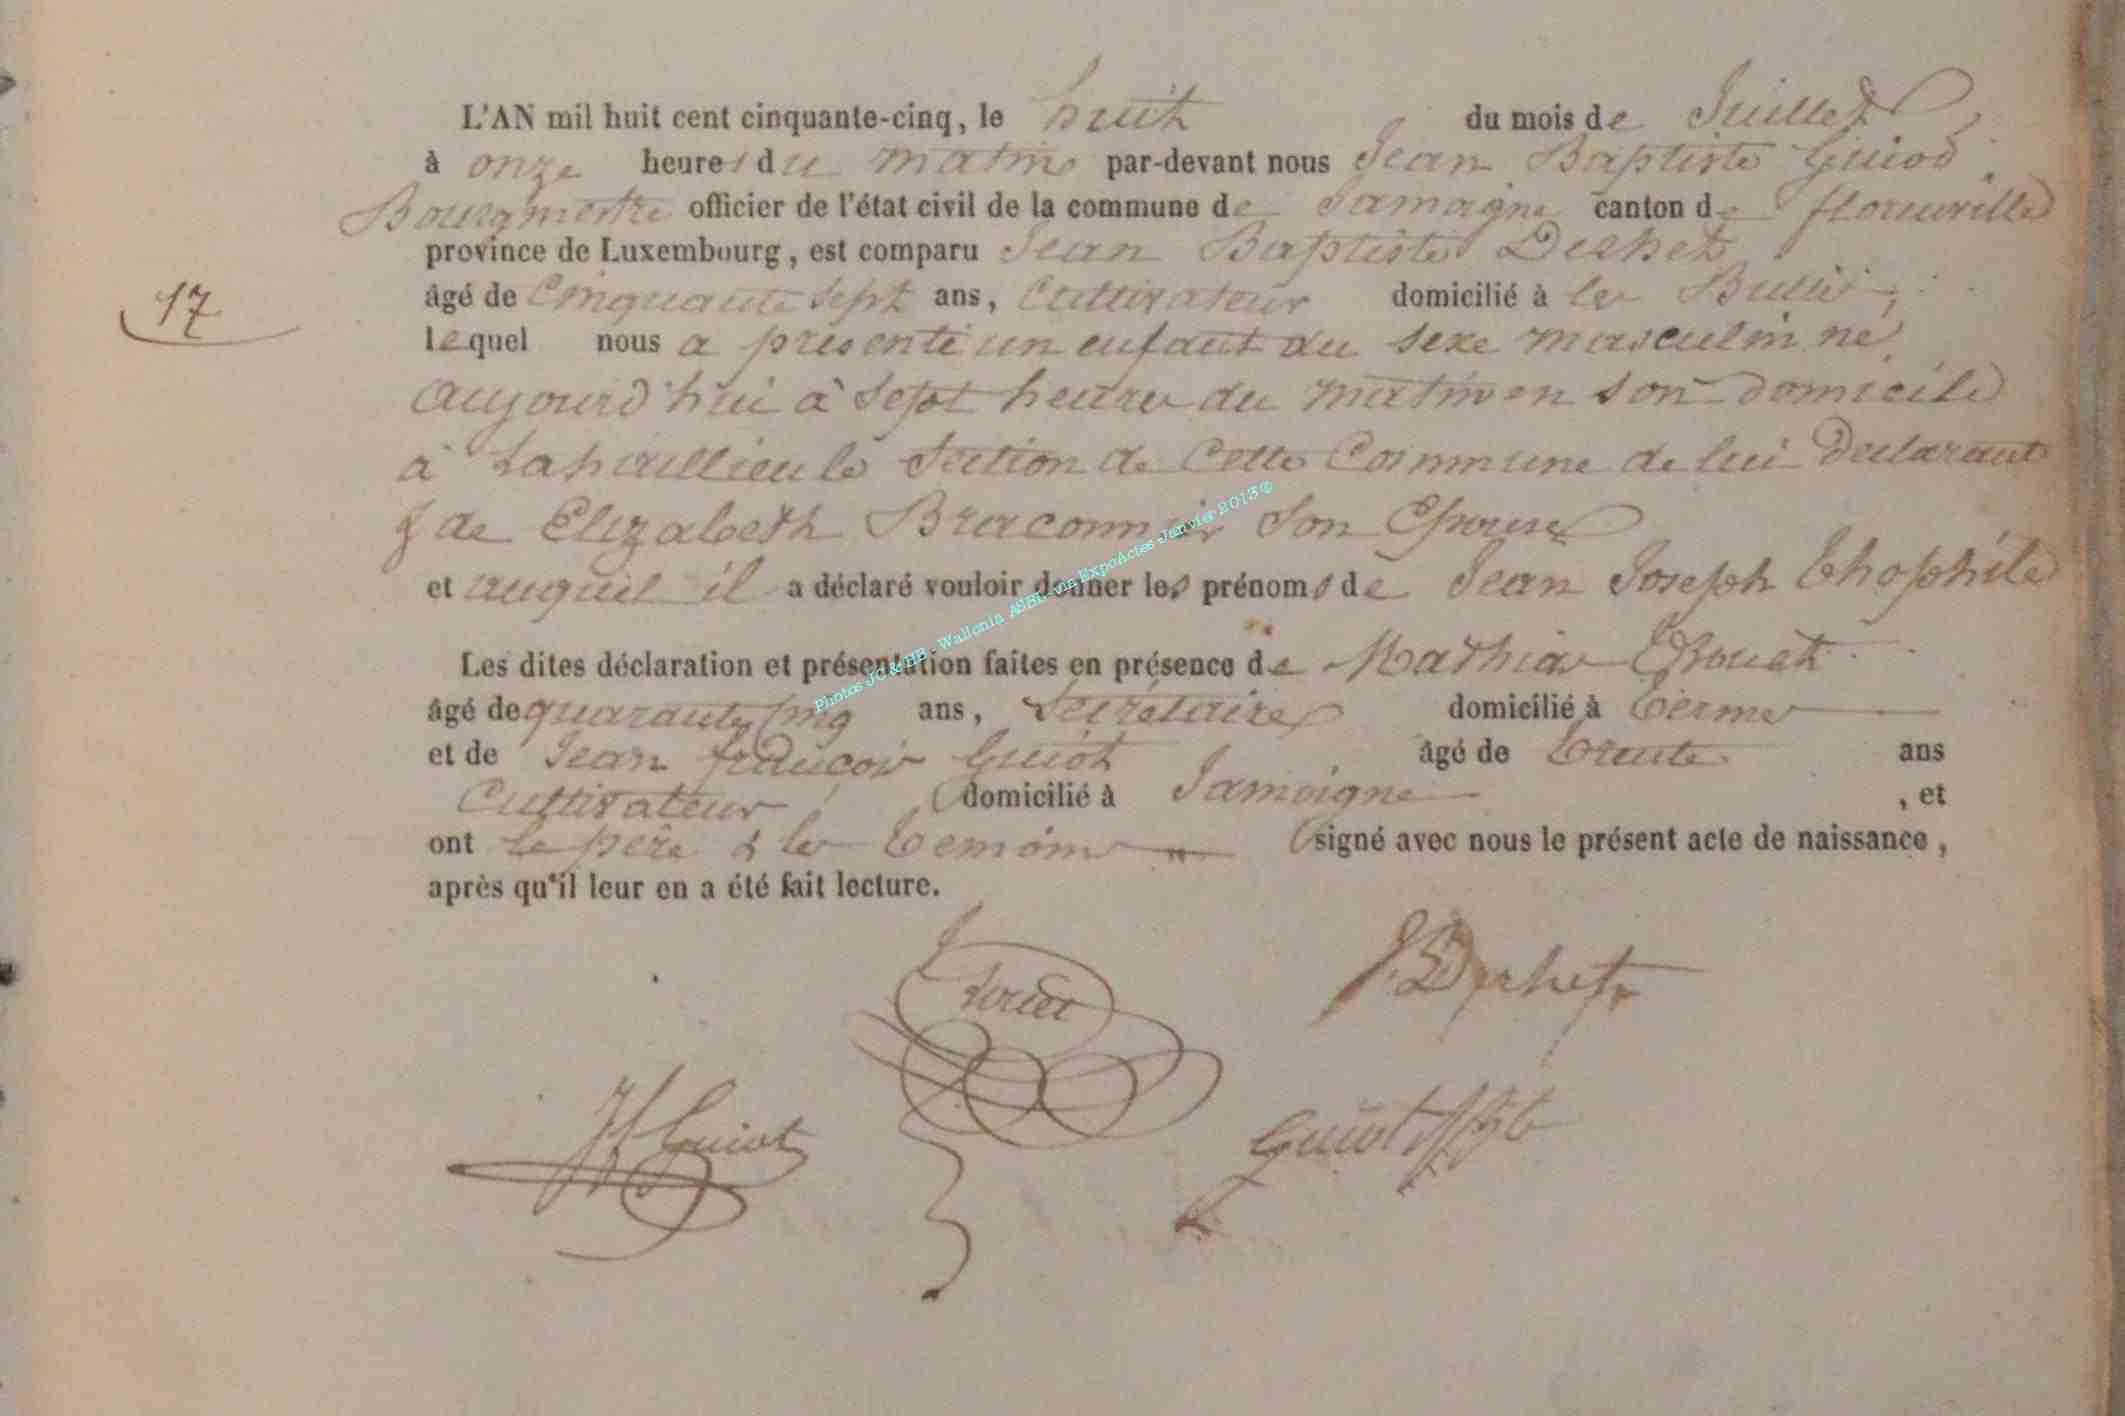 L'AN mil huit cent cinquante-cinq, le huit du mois de Juillet
à onze heures du matin par-devant nous Jean Baptiste Guiot
Bourgmestre officier de l'état civil de la commune de Jamoigne canton de florenville
province de Luxembourg, est comparu Jean Baptiste Derhet
17
âgé de Cinquante sept ans, Cultivateur domicilié à les Bulles,
lequel nous a présenté un enfant du sexe masculin né
aujourd'hui à Sept heures du matin en son domicile
à section de Cette Commune de lui Déclarant
& de Elizabeth Braconnier Son Epouse
et auquel il a déclaré vouloir donner les prénoms de Jean Joseph Thophile
Les dites déclaration et présentation faites en présence de Mathias
âgé de quarante Cinq ans, Secrétaire domicilié à Termes
et de Jean françois Guiot âgé de trente ans
Cultivateur domicilié à Jamoigne, et
ont le père & les temoins signé avec nous le présent acte de naissance,
après qu'il leur en a été fait lecture.
J. Derhet
JF Guiot
Guiot
Photos JC & BB - Wallonia ASBL via ExpoActes Janvier 2013 ©